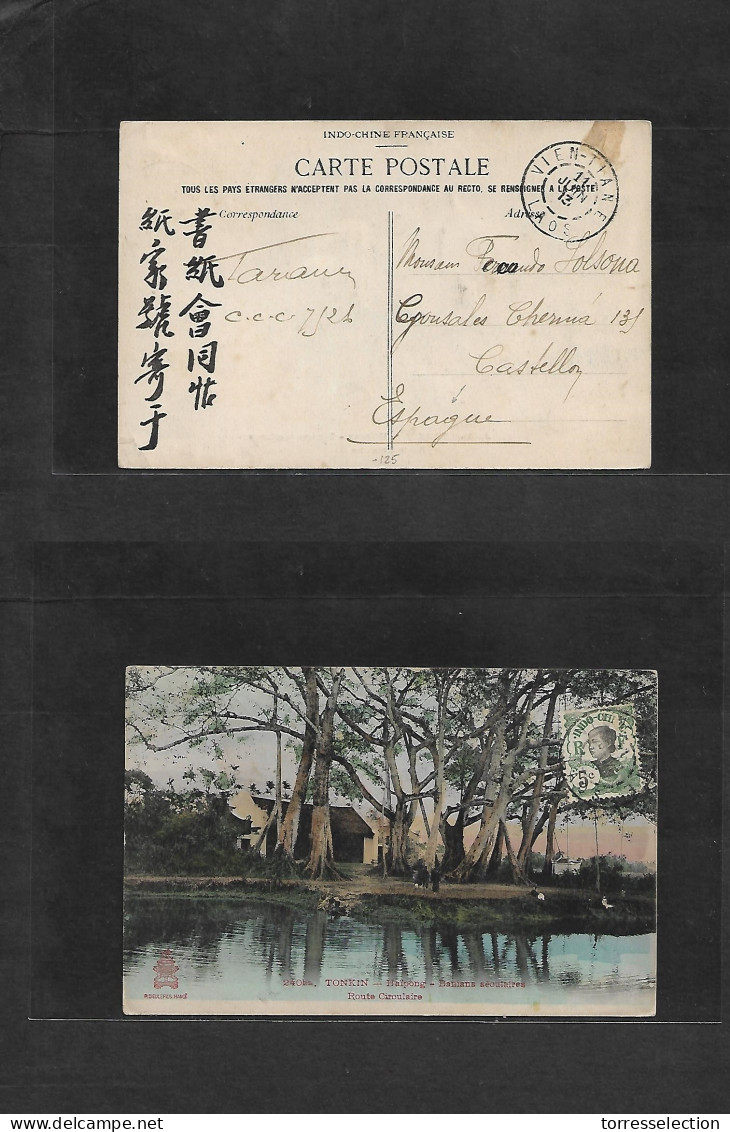 INDO-CHINE FRANÇAISE
CARTE POSTALE
TOUS LES PAYS ÉTRANGERS N'ACCEPTENT PAS LA CORRESPONDANCE AU RECTO. SE RENSEIGNER A LA POSTE
Correspondance
Adresse
VIEN-TIANE
11
JUIN
13
LAOS
書紙會同帖
紙家號寄于
C.C.C. 7/22
Monsieur Fernando Solsona
Gonsales Chermá 131
Castellon
Espagne
-125
INDO-CHINE
R F
5c
240bis. TONKIN - Haïpong - Banians séculaires
Route Circulaire
P. DIEULEFILS, HANOÏ
torresselection